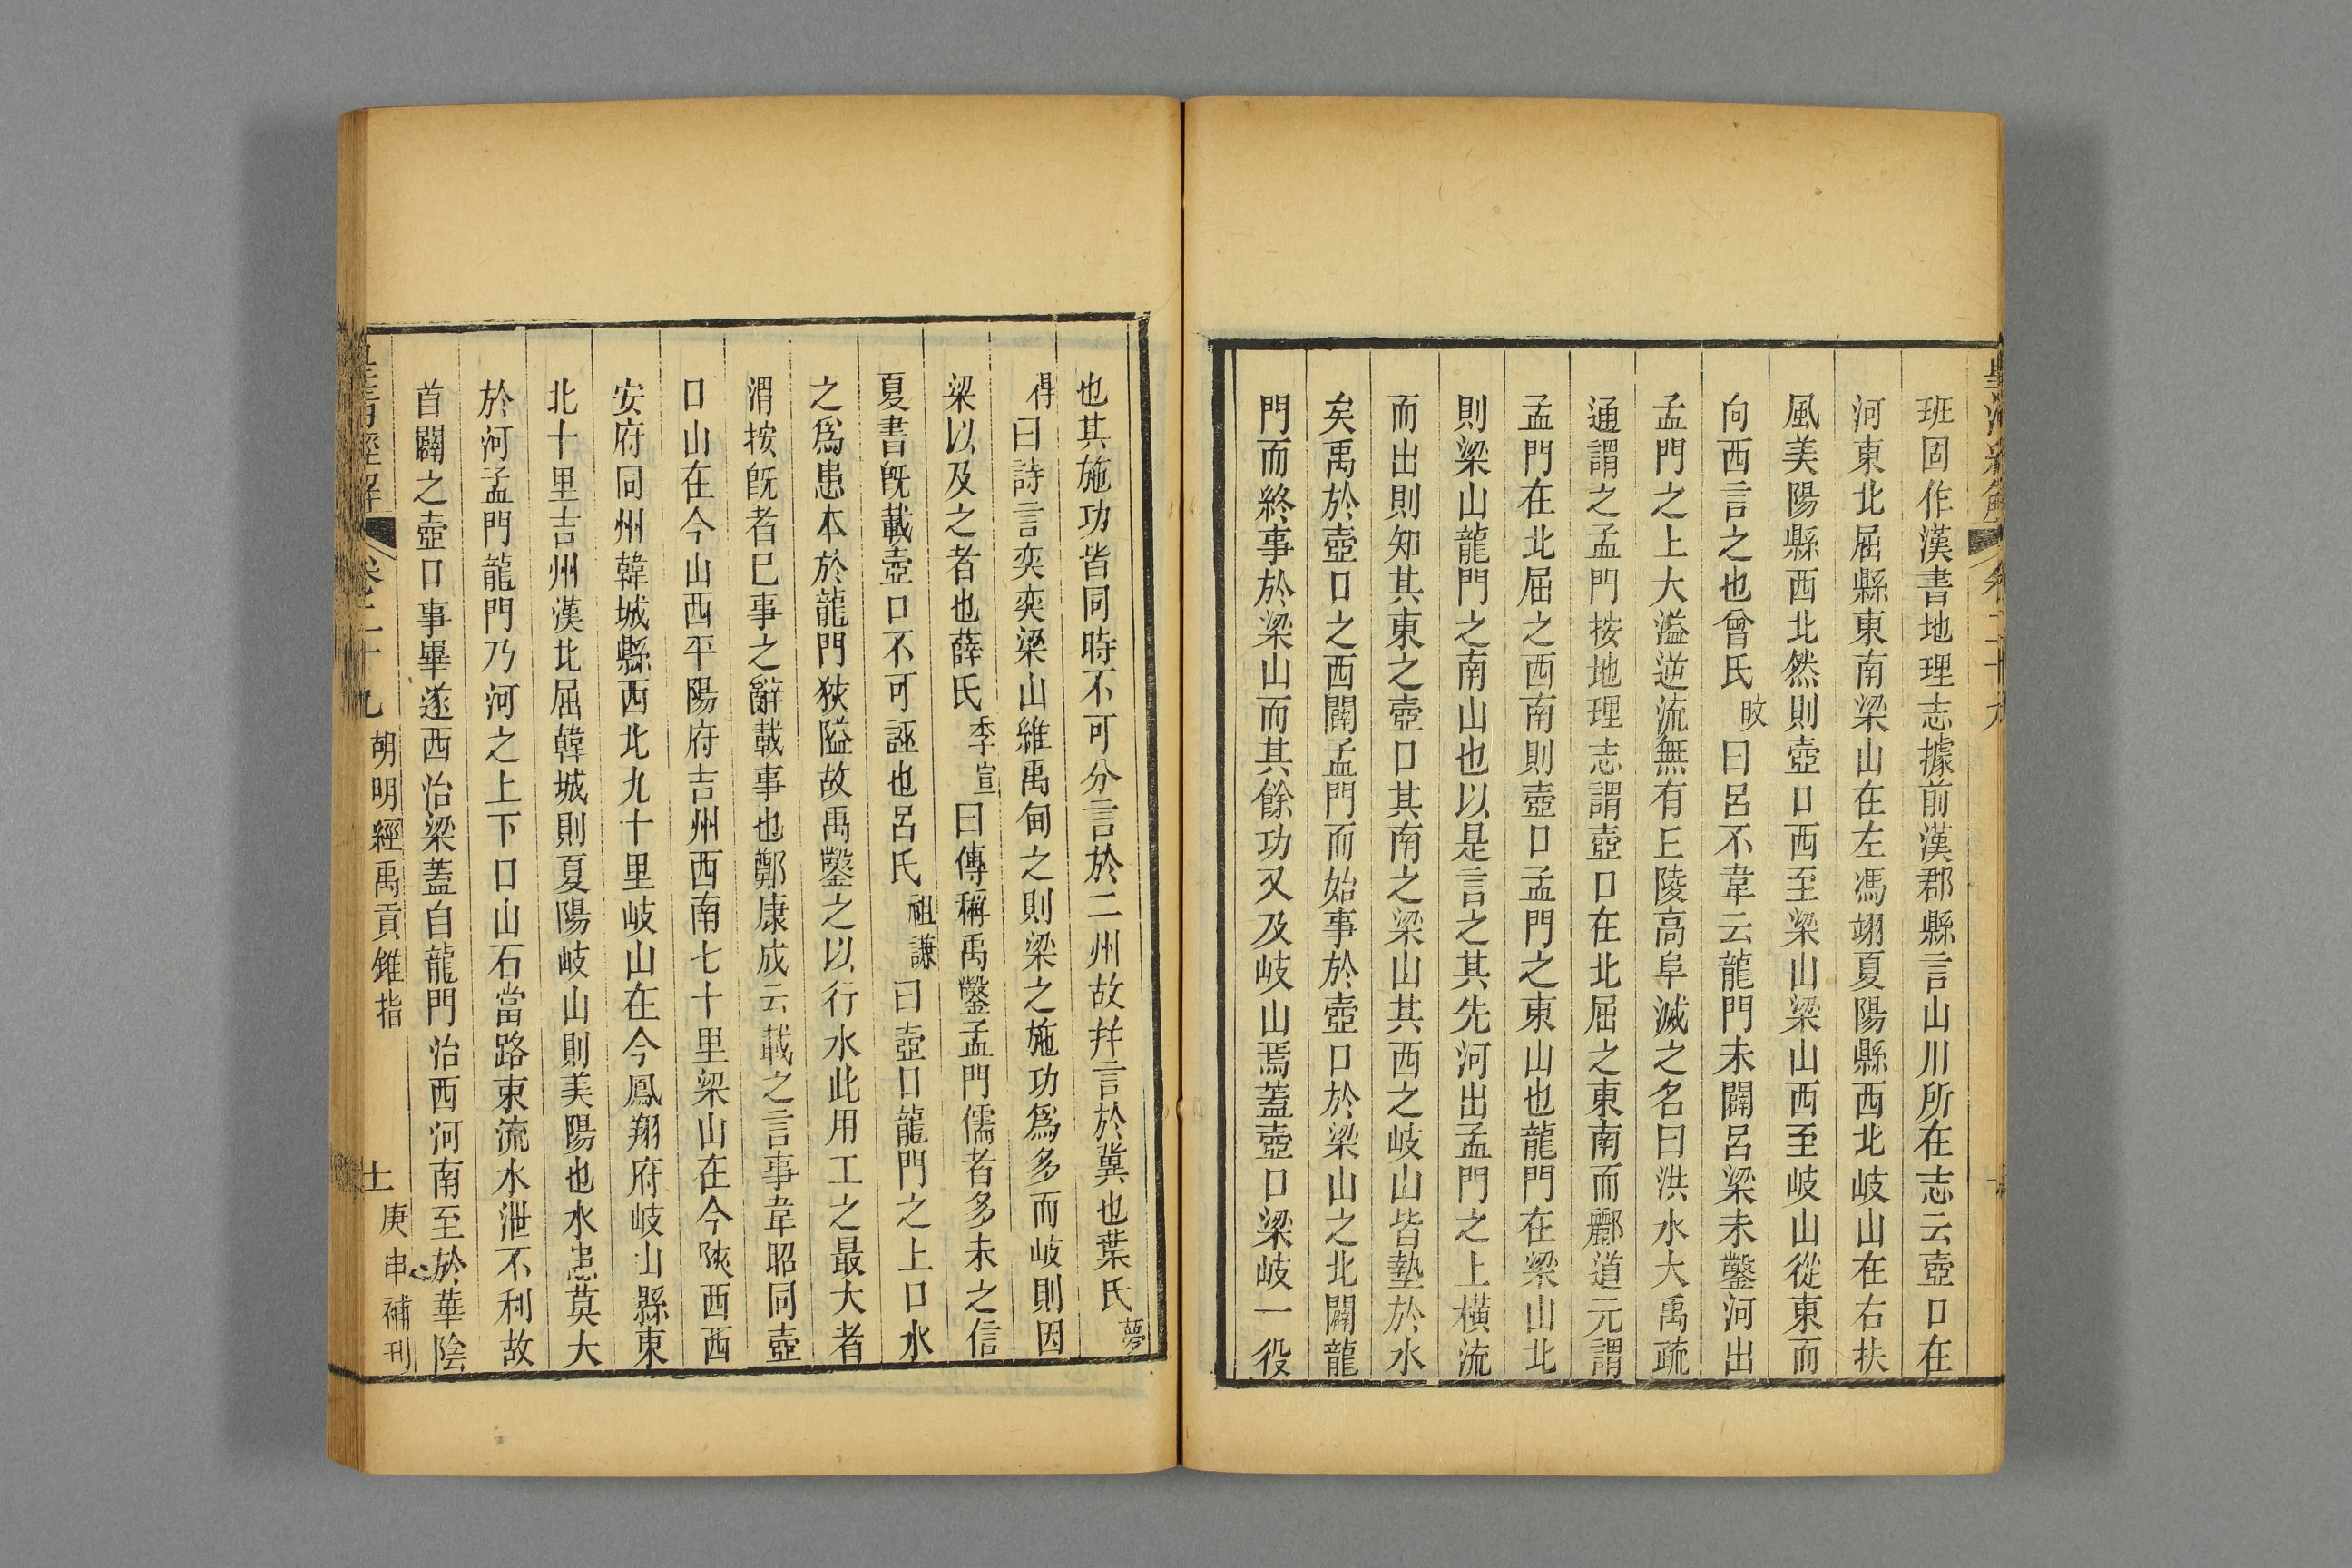 班固作漢書地理志據前漢郡縣言山川所在志云壺口在
河東北屈縣東南梁山在左馮翊夏陽縣西北岐山在右扶
風美陽縣西北然則壺口西至梁山梁山西至岐山從東而
向西言之也曾氏旼曰呂不韋云龍門未闢呂梁未鑿河出
孟門之上大溢逆流無有丘陵高阜滅之名曰洪水大禹疏
通謂之孟門按地理志謂壺口在北屈之東南而酈道元謂
孟門在北屈之西南則壺口孟門之東山也龍門在梁山北
則梁山龍門之南山也以是言之其先河出孟門之上橫流
而出則知其東之壺口其南之梁山其西之岐山皆墊於水
矣禹於壺口之西闢孟門而始事於壺口於梁山之北闢龍
門而終事於梁山而其餘功又及岐山焉蓋壺口梁岐一役
也其施功皆同時不可分言於二州故幷言於冀也葉氏夢
得曰詩言奕奕梁山維禹甸之則梁之施功爲多而岐則因
梁以及之者也薛氏季宣曰傳稱禹鑿孟門儒者多未之信
夏書旣載壺口不可誣也呂氏祖謙曰壺口龍門之上口水
之爲患本於龍門狹隘故禹鑿之以行水此用工之最大者
渭按旣者已事之辭載事也鄭康成云載之言事韋昭同壺
口山在今山西平陽府吉州西南七十里梁山在今陝西西
安府同州韓城縣西北九十里岐山在今鳳翔府岐山縣東
北十里吉州漢北屈韓城則夏陽岐山則美陽也水患莫大
於河孟門龍門乃河之上下口山石當路束流水泄不利故
首闢之壺口事畢遂西治梁蓋自龍門治西河南至於華陰
皇清經解 卷二十九 胡明經禹貢錐指 士 庚申補刊